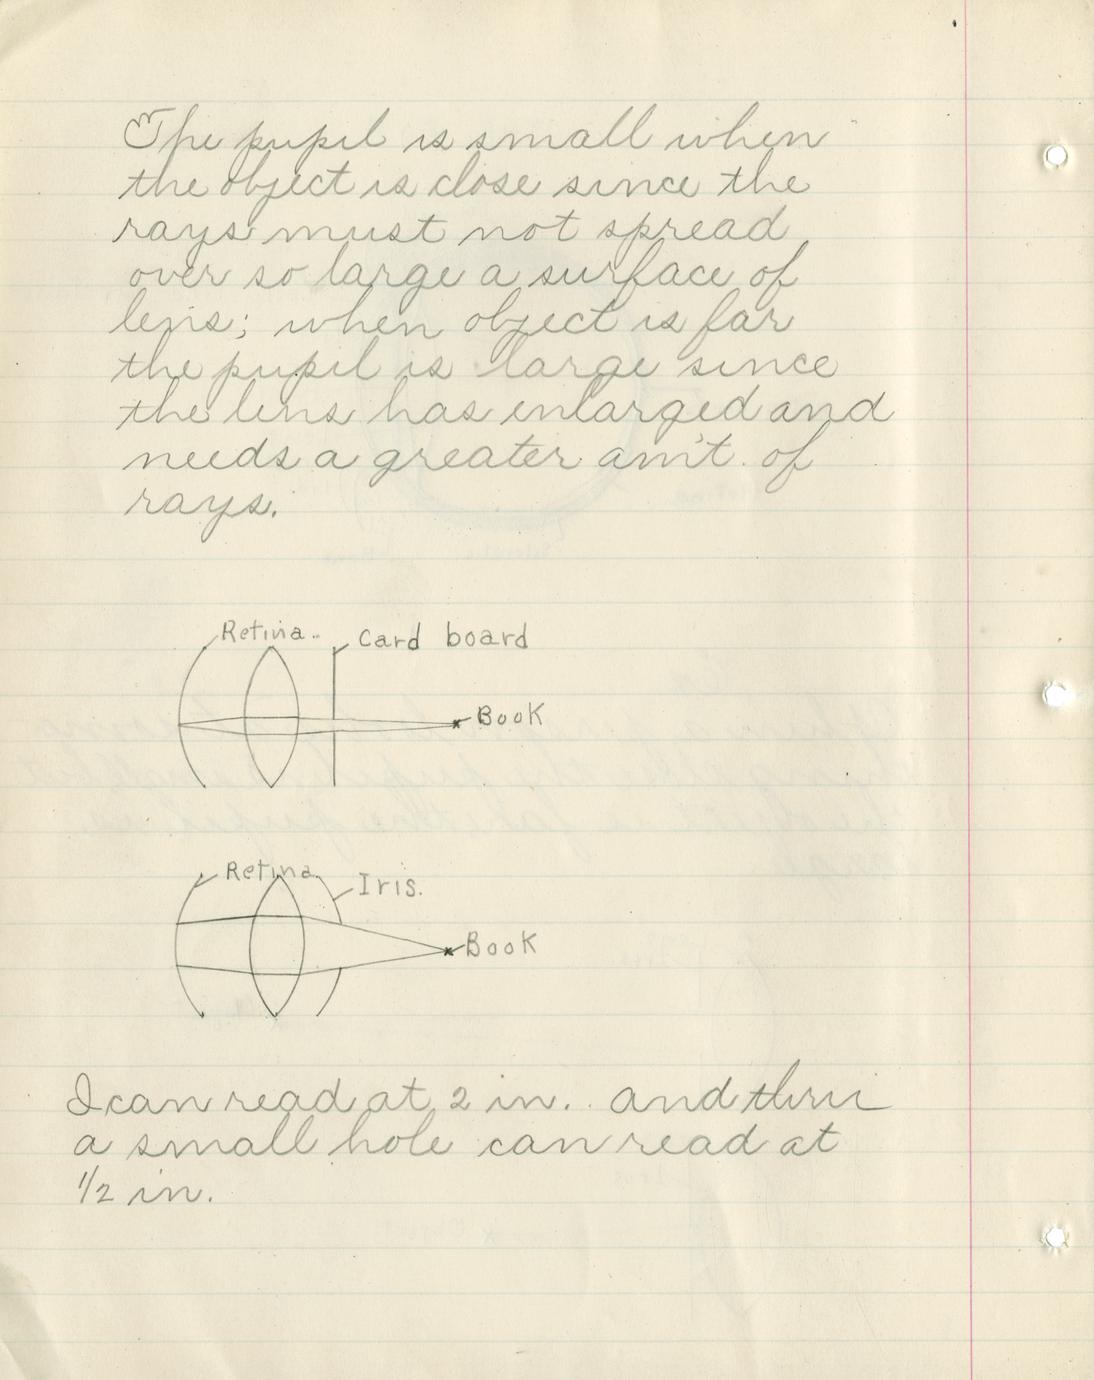 The pupil is small when
the object is close since the
rays must not spread
over so large a surface of
lens; when object is far
the pupil is large since
the lens has enlarged and
needs a greater am't. of
rays.
Retina.
Card board
Book
Retina.
Iris.
Book
I can read at 2 in. and thru
a small hole can read at
1/2 in.